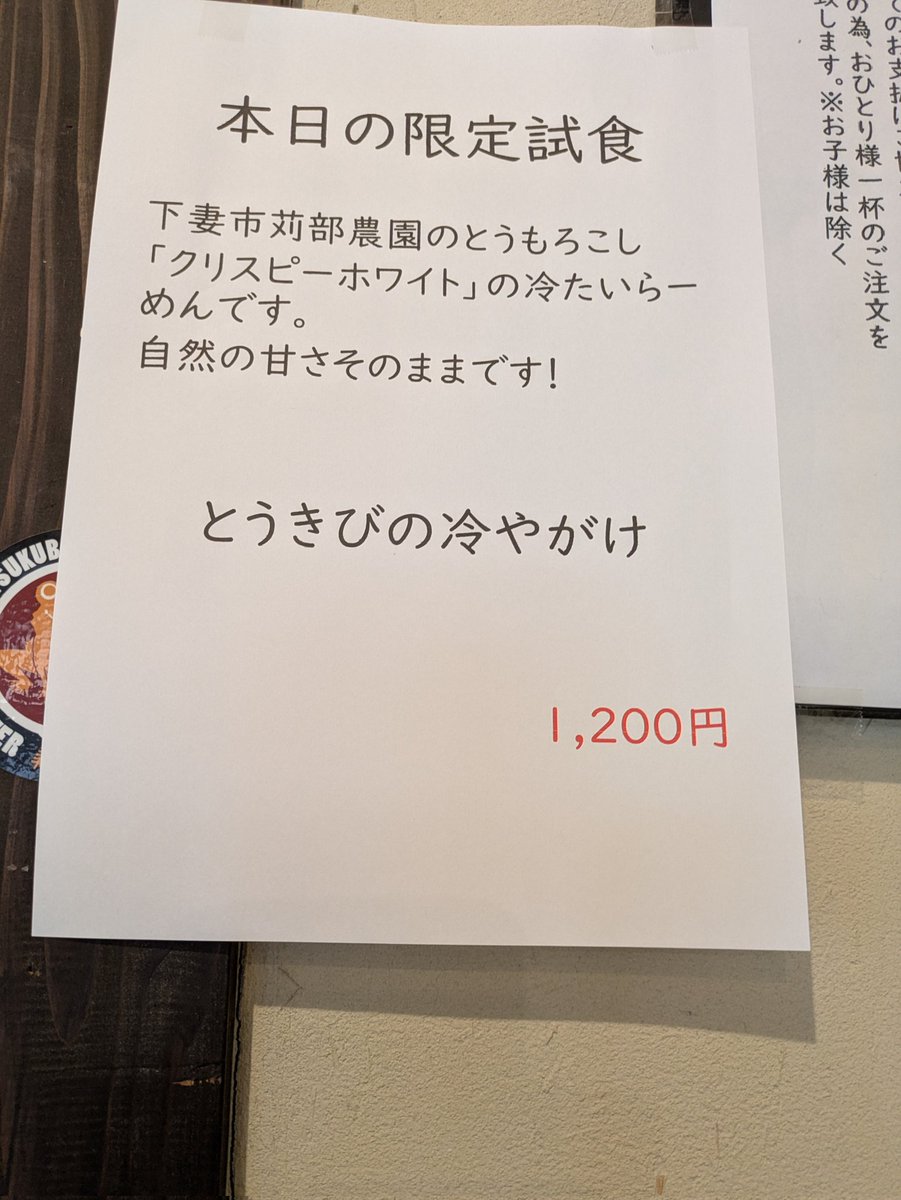 本日の限定試食
下妻市苅部農園のとうもろこし
「クリスピーホワイト」の冷たいらー
めんです。
自然の甘さそのままです!
とうきびの冷やがけ
1,200円
の為、おひとり様一杯のご注文を
致します。※お子様は除く